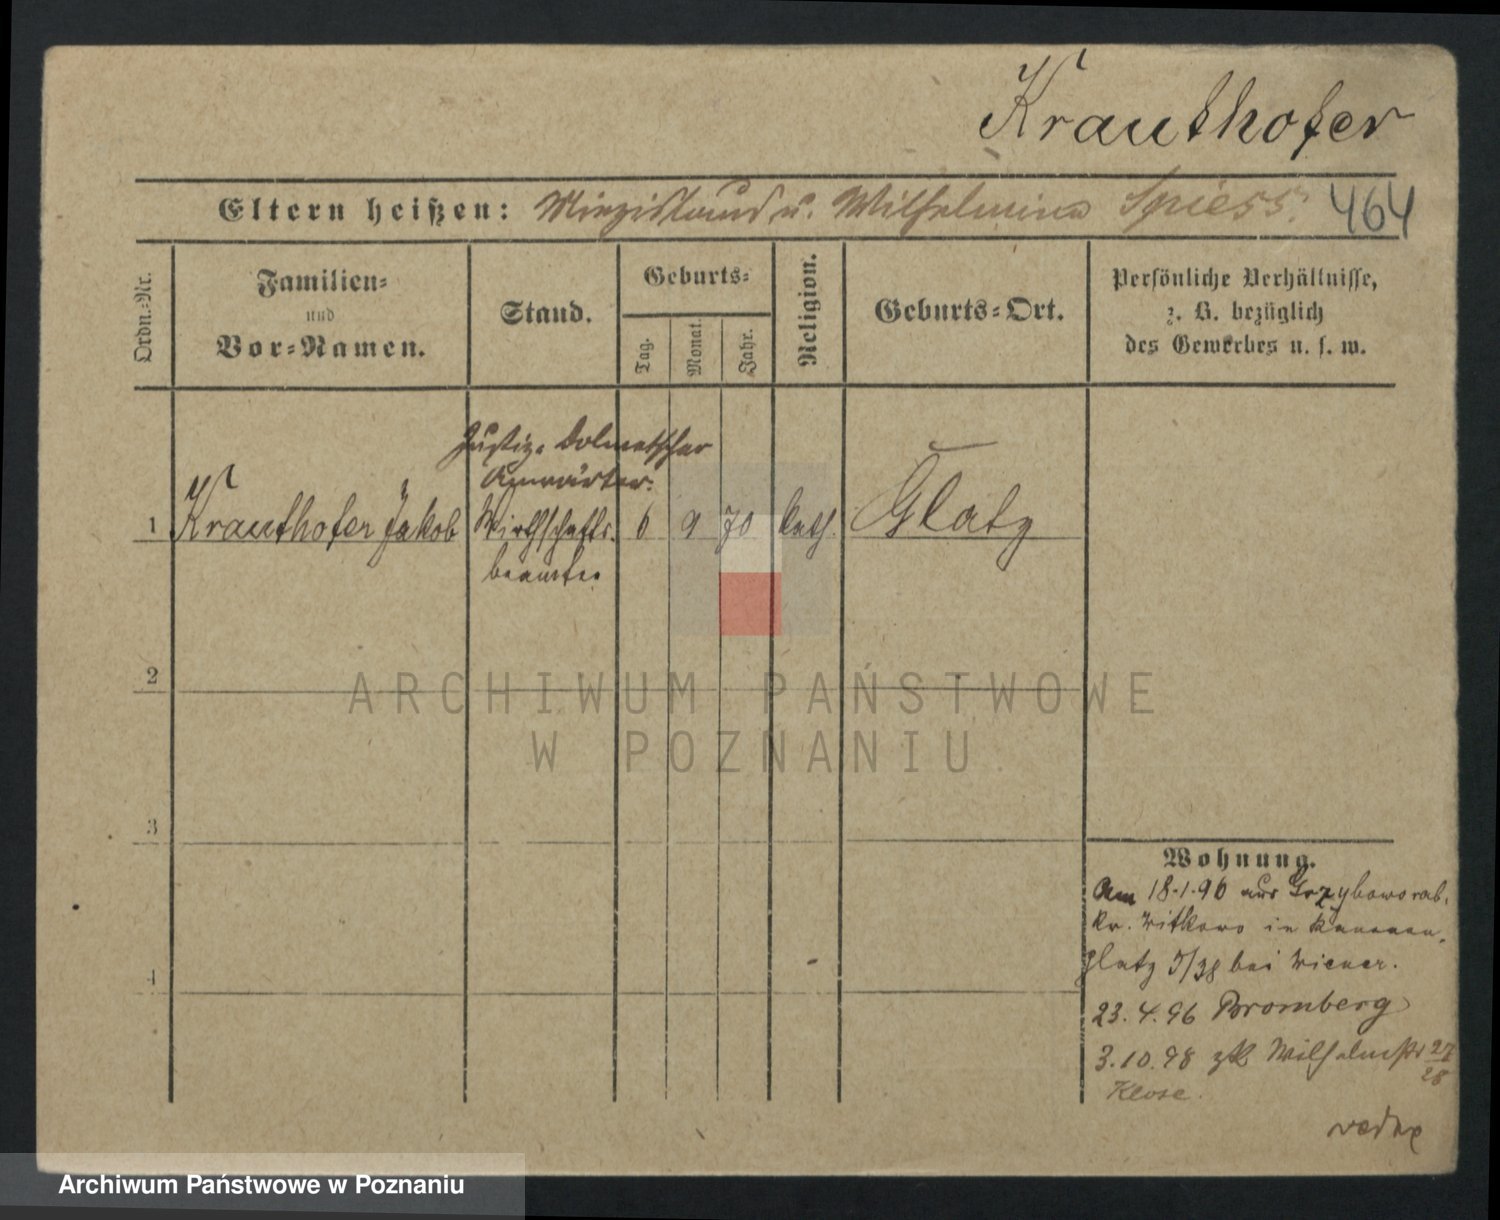 Krauthofer
Eltern heißen: Miezislaus u. Wilhelmina Spiess. 464
Ordn.-Nr.
Familien-
und
Vor-Namen.
Stand.
Geburts-
Tag.
Monat.
Jahr.
Religion.
Geburts-Ort.
Persönliche Verhältnisse,
z. B. bezüglich
des Gewerbes u. s. w.
Justiz-Dolmetscher
Anwärter.
1 Krauthofer Jakob Wirthschafts- 6 9 70 kath. Glatz
beamter
2
ARCHIWUM PAŃSTWOWE
W POZNANIU
3
4
Wohnung.
Am 18.1.96 aus Grzybowo
Kr. Witkowo in Kanonen-
platz bei Wiener.
23.4.96 Bromberg
3.10.98 zk Wilhelmstr 27/28
Klose.
Archiwum Państwowe w Poznaniu